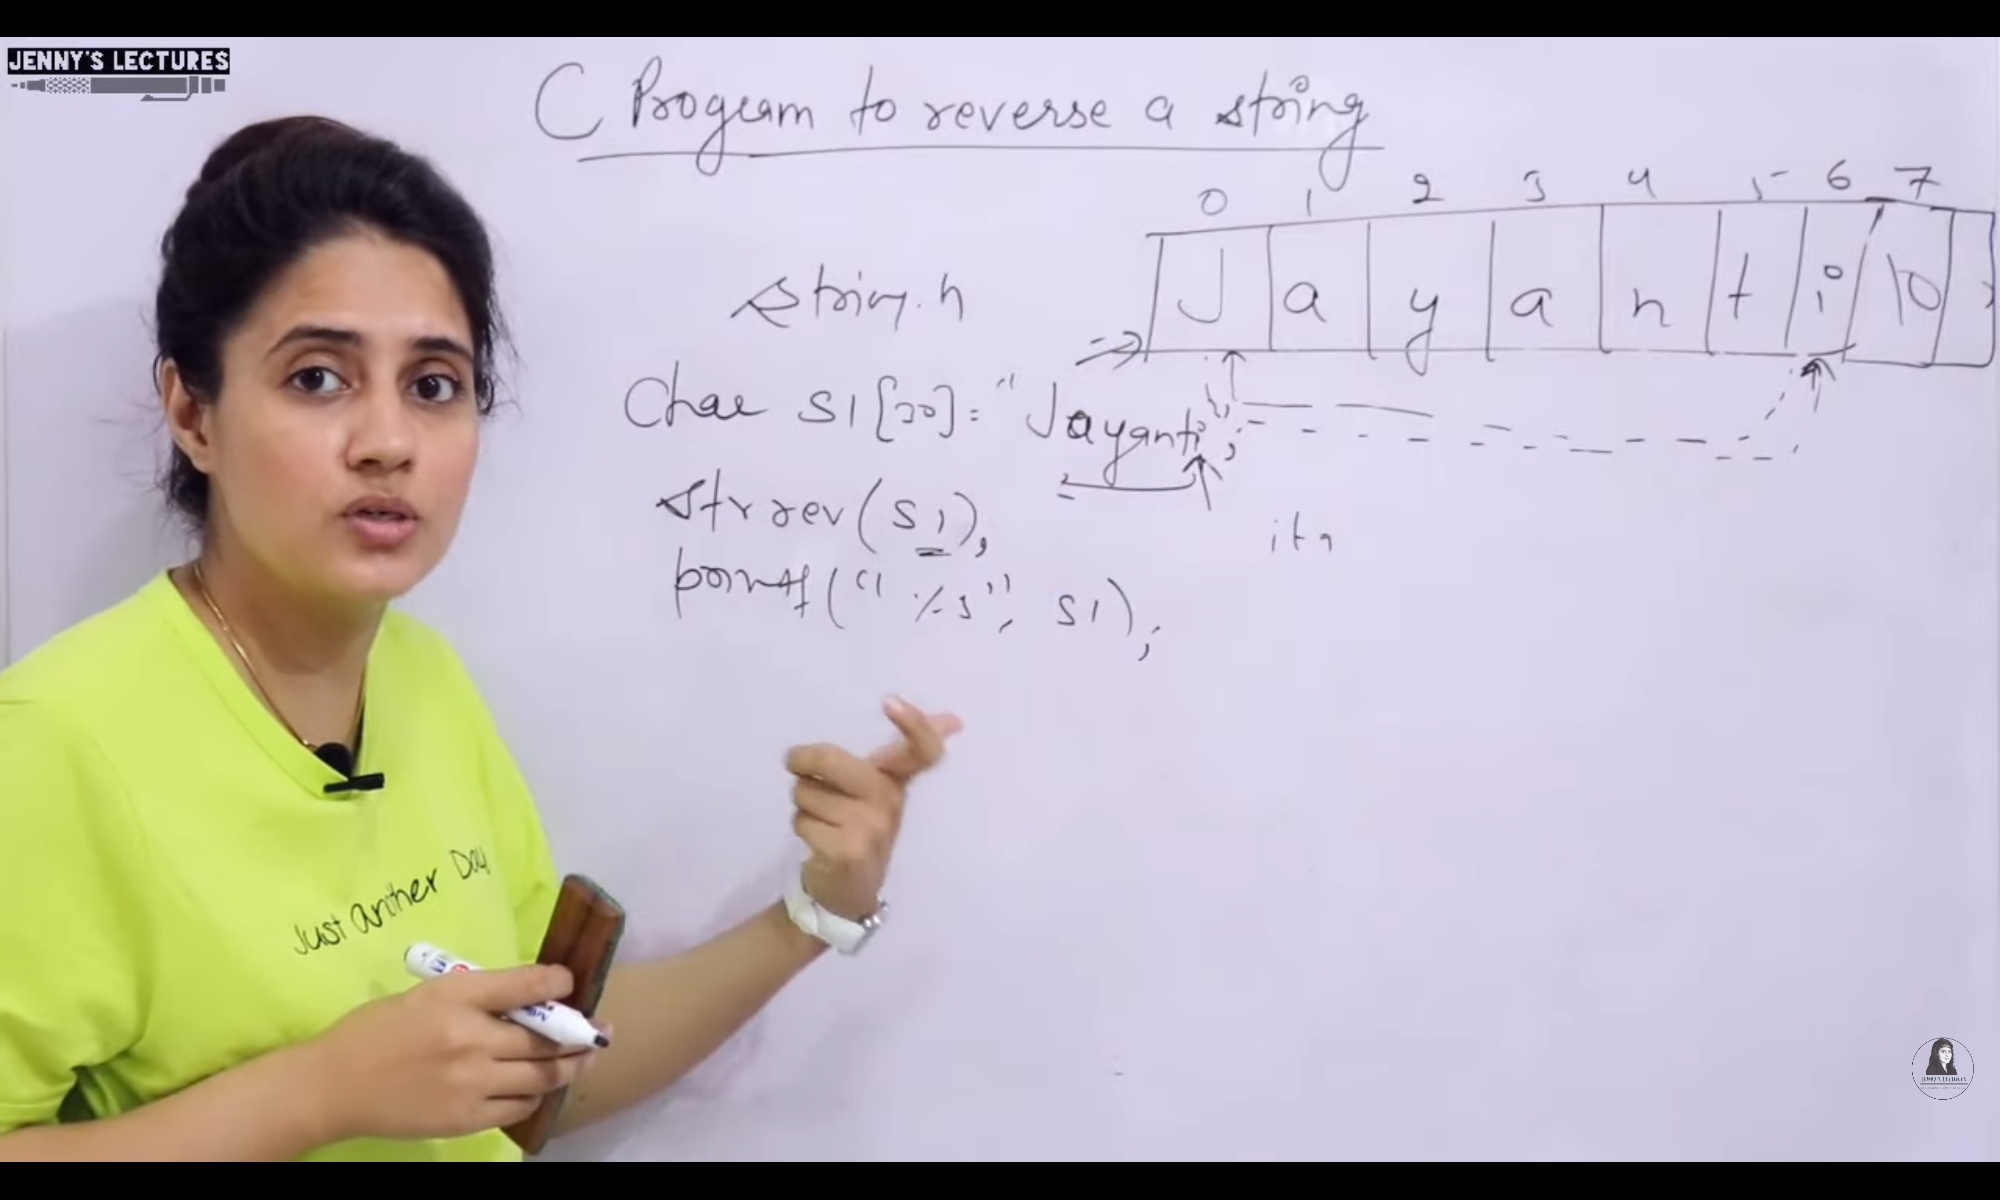 JENNY'S LECTURES
C Program to reverse a string
0 1 2 3 4 5 6 7
J a y a n t i \0
string.h
Char S1[20]= "Jayanti";
strrev(S1),
printf("%s", S1);
Just another Day
JENNY'S LECTURES